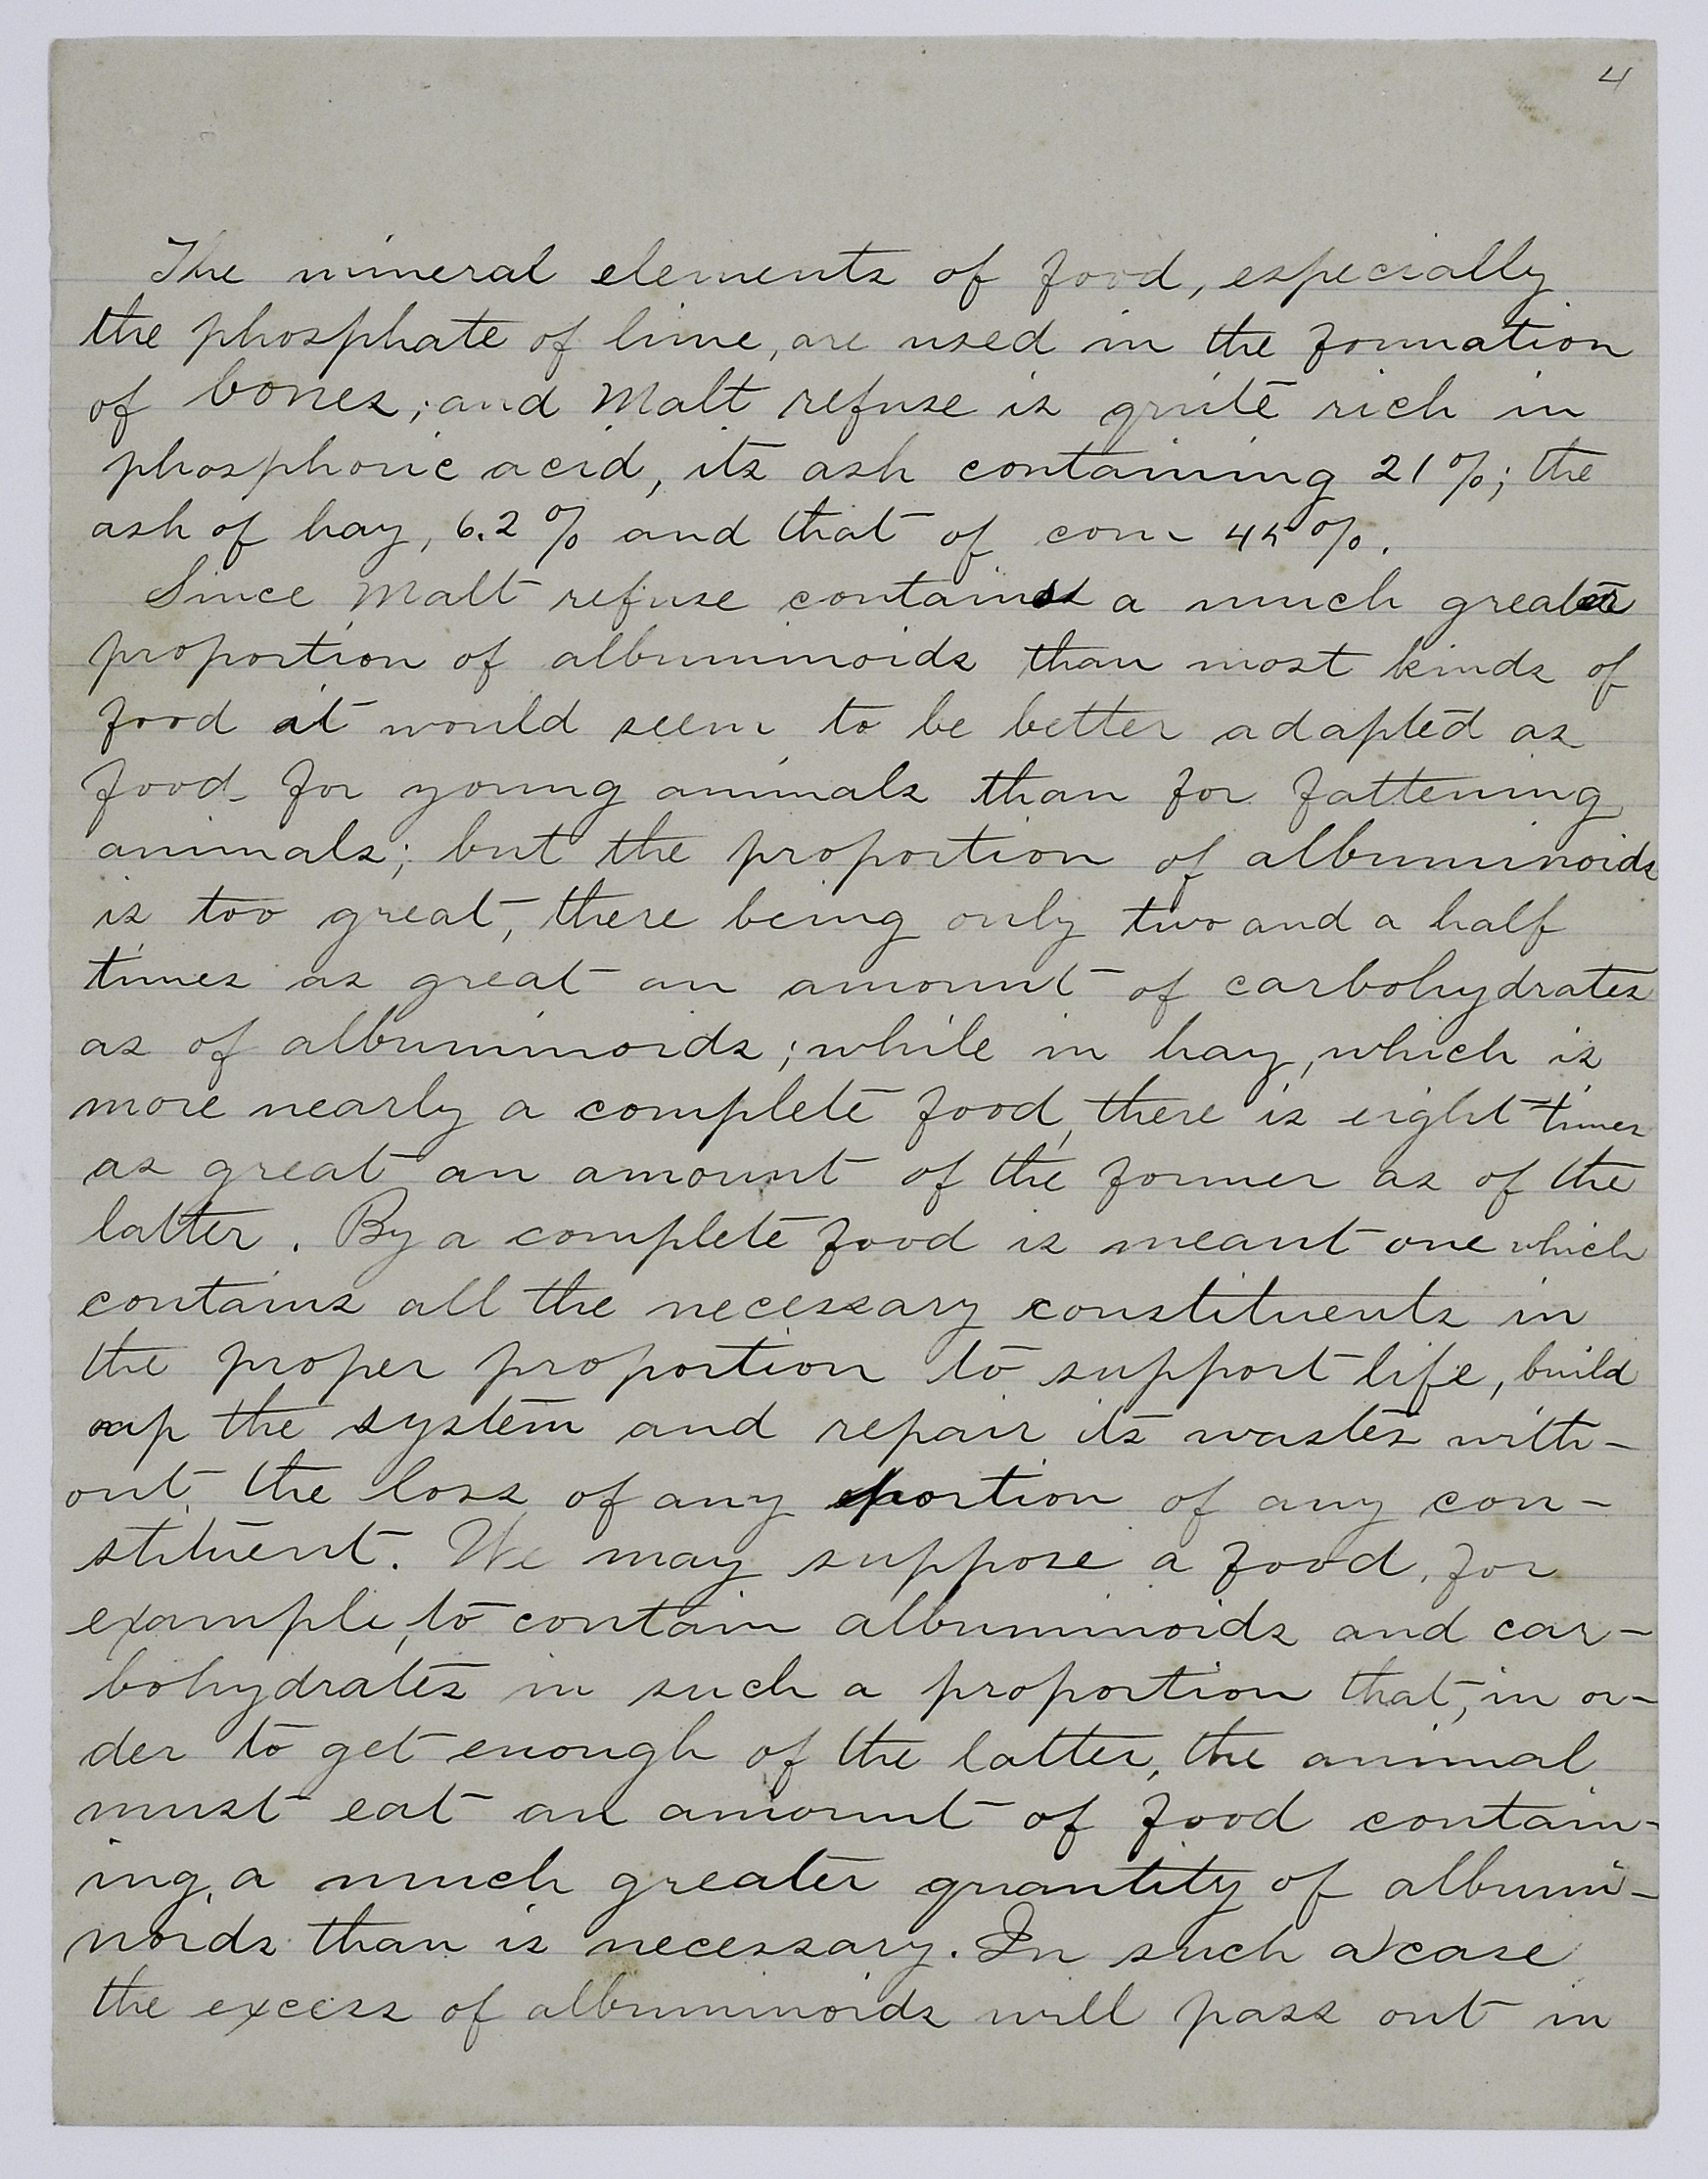 4
The mineral elements of food, especially
the phosphate of lime, are used in the formation
of bones; and Malt refuse is quite rich in
phosphoric acid, its ash containing 21%; the
ash of hay, 6.2% and that of corn 45%.
Since Malt refuse contains a much greater
proportion of albuminoids than most kinds of
food it would seem to be better adapted as
food for young animals than for fattening
animals; but the proportion of albuminoids
is too great, there being only two and a half
times as great an amount of carbohydrates
as of albuminoids; while in hay, which is
more nearly a complete food, there is eight times
as great an amount of the former as of the
latter. By a complete food is meant one which
contains all the necessary constituents in
the proper proportion to support life, build
up the system and repair its wastes with-
out the loss of any portion of any con-
stituent. We may suppose a food, for
example, to contain albuminoids and car-
bohydrates in such a proportion that, in or-
der to get enough of the latter, the animal
must eat an amount of food contain-
ing, a much greater quantity of albumi-
noids than is necessary. In such a case
the excess of albuminoids will pass out in